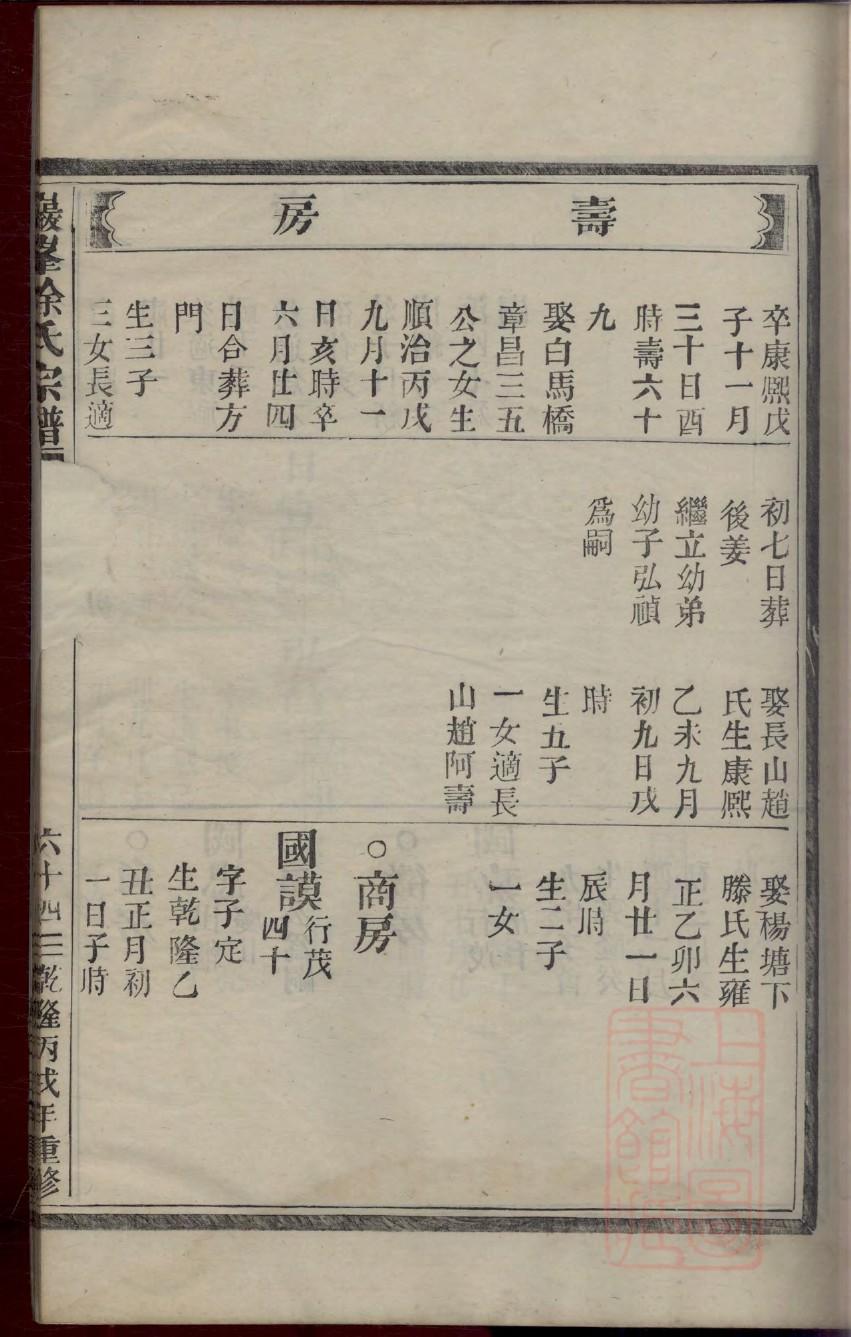 壽房
卒康熈戊
子十一月
三十日酉
時壽六十
九
娶白馬橋
章昌三五
公之女生
順治丙戌
九月十一
日亥時卒
六月廿四
日合葬方
門
生三子
三女長適
初七日葬
後姜
繼立幼弟
幼子弘禎
爲嗣
娶長山趙
氏生康熈
乙未九月
初九日戌
時
生五子
一女適長
山趙阿壽
娶楊塘下
滕氏生雍
正乙卯六
月廿一日
辰時
生二子
一女
○商房
國謨行茂
四十
字子定
生乾隆乙
丑正月初
一日子時
巖峯徐氏宗譜
六十四
乾隆丙戌年重修
上海圖書館藏